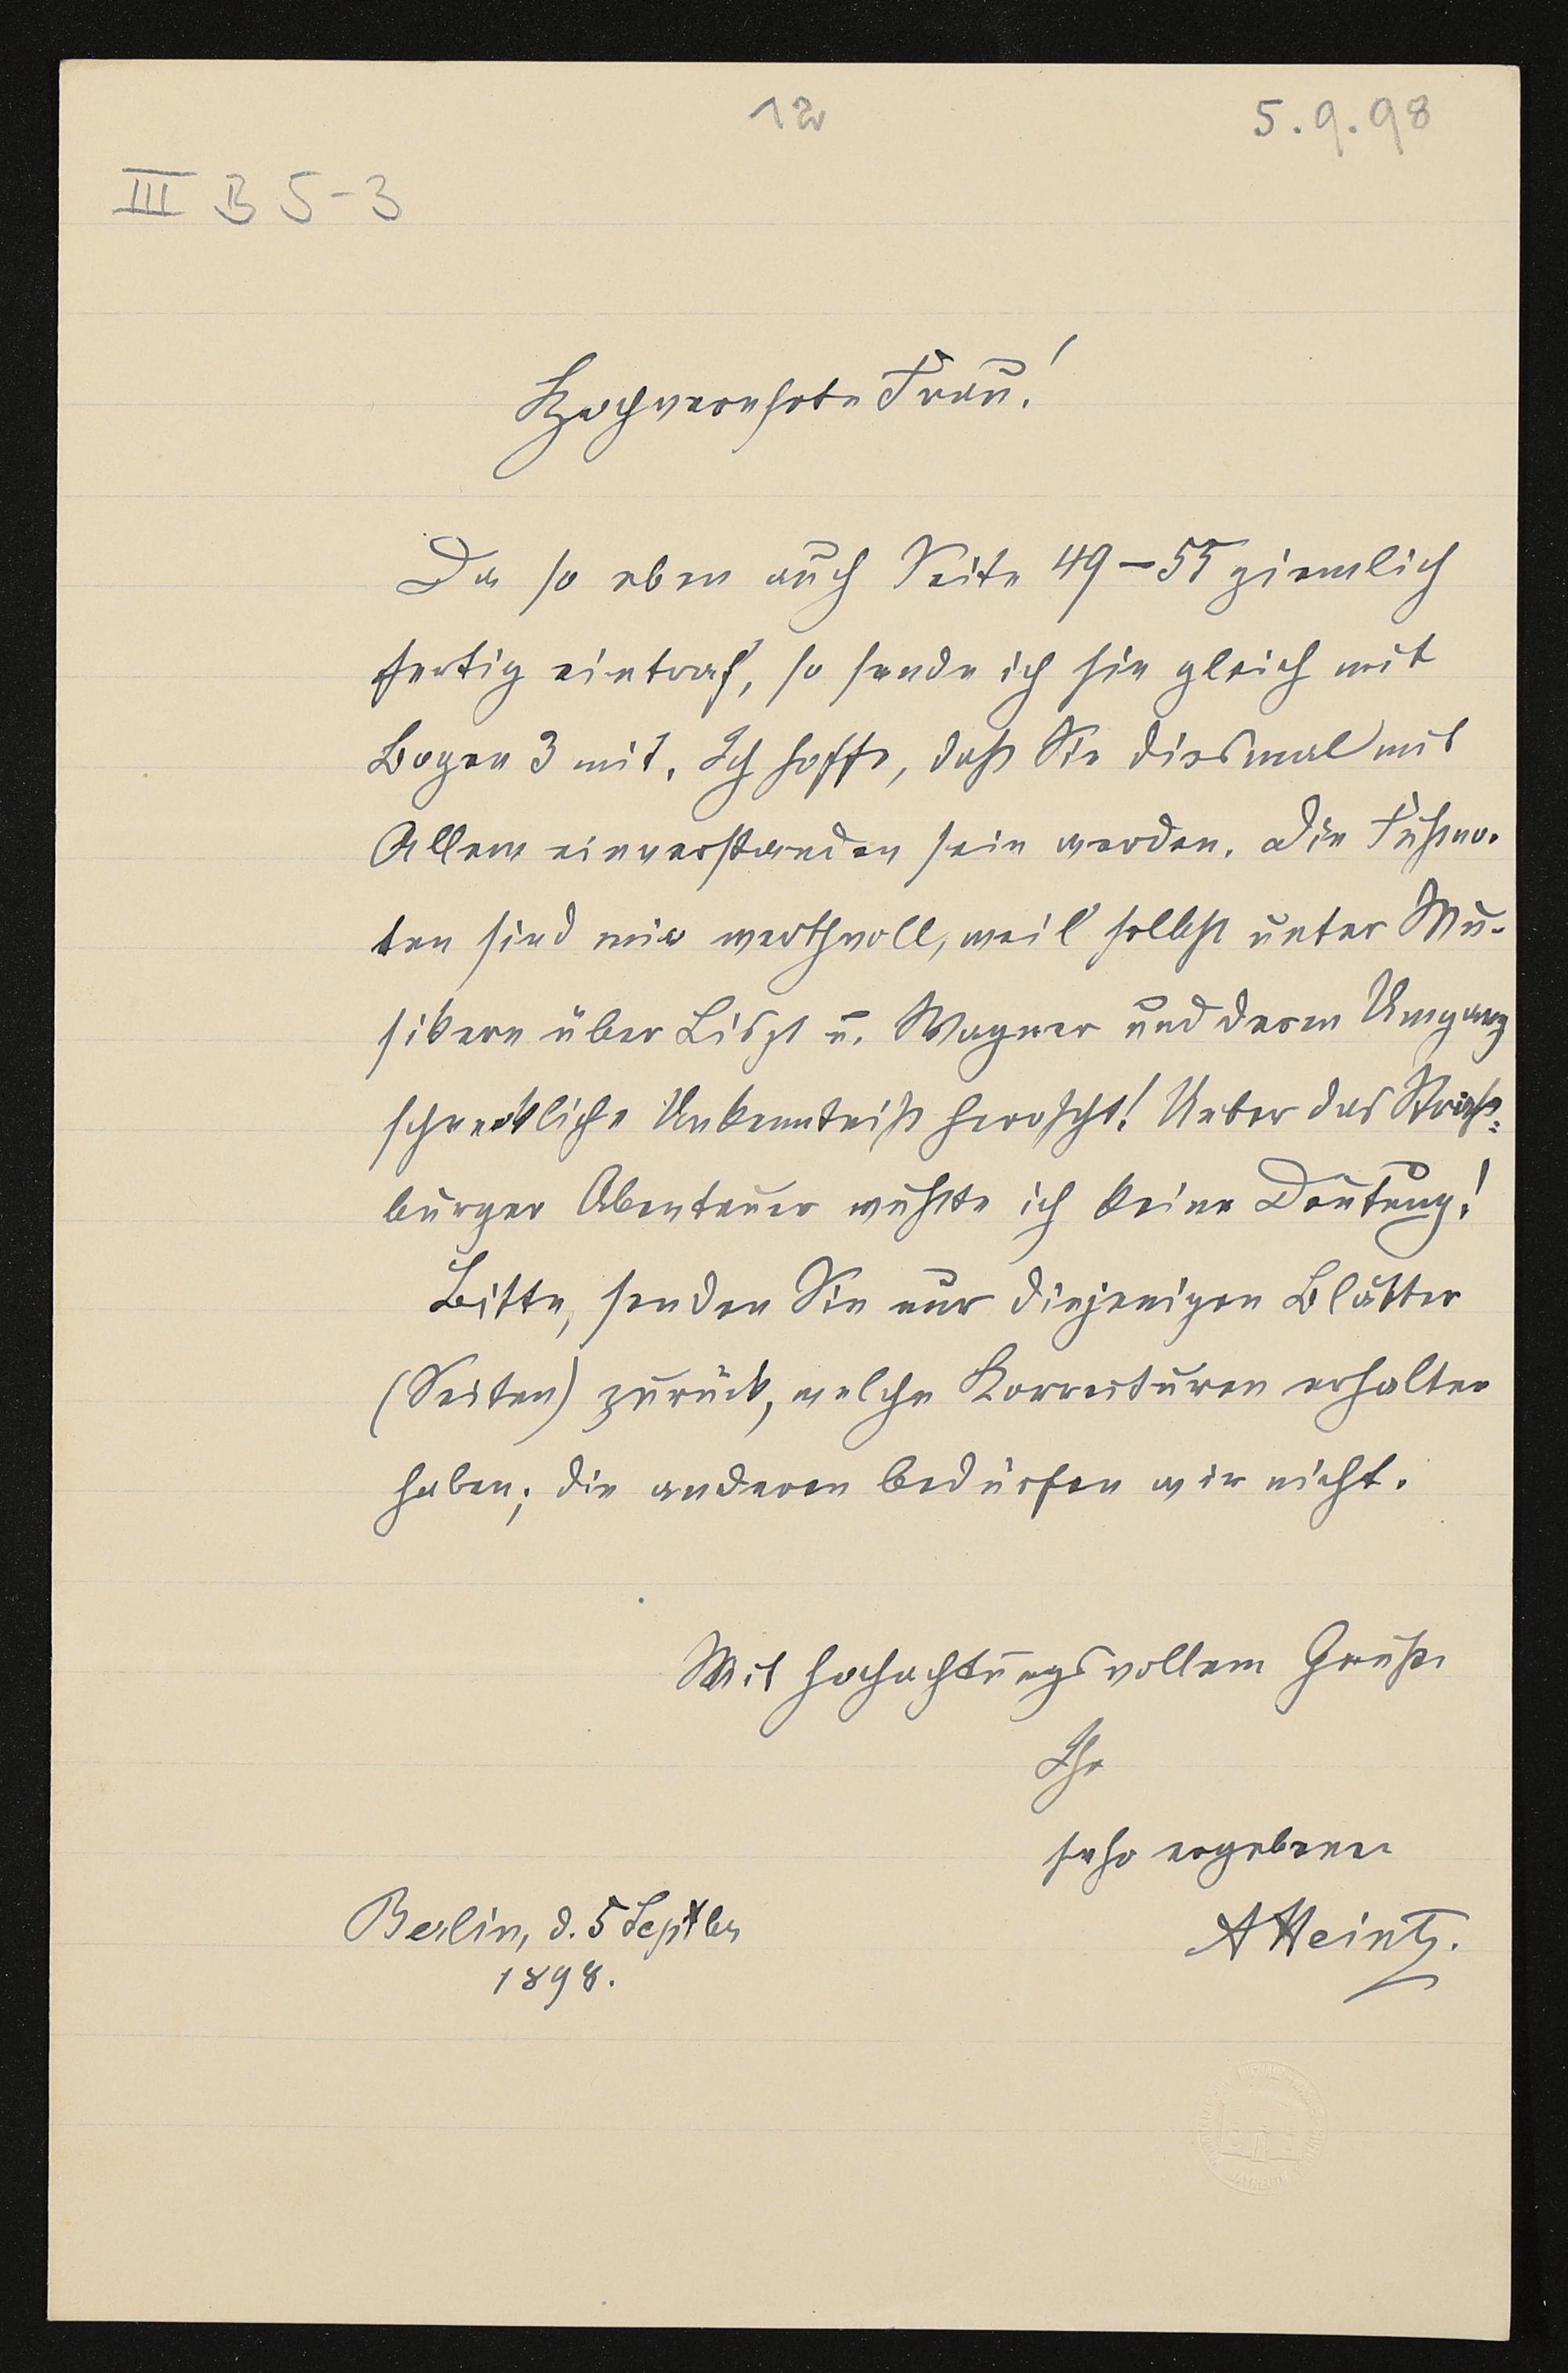 12
5.9.98
III B 5-3
Hochverehrte Frau!
Da so eben auch Seite 49–55 ziemlich
fertig eintraf, so sende ich sie gleich mit
Bogen 3 mit. Ich hoffe, daß Sie diesmal mit
Allem einverstanden sein werden. Die Fußno-
ten sind mir werthvoll, weil selbst unter Mu-
sikern über Liszt u. Wagner und deren Umgang
schreckliche Unkenntniß herrscht! Ueber das Straß-
burger Abenteuer wußte ich keine Deutung!
Bitte, senden Sie nur diejenigen Blätter
(Seiten) zurück, welche Korrecturen erhalten
haben; die anderen bedürfen wir nicht.
Mit hochachtungsvollem Gruße
Ihr
sehr ergebener
Berlin, d. 5 Septbr
AHeintz.
1898.